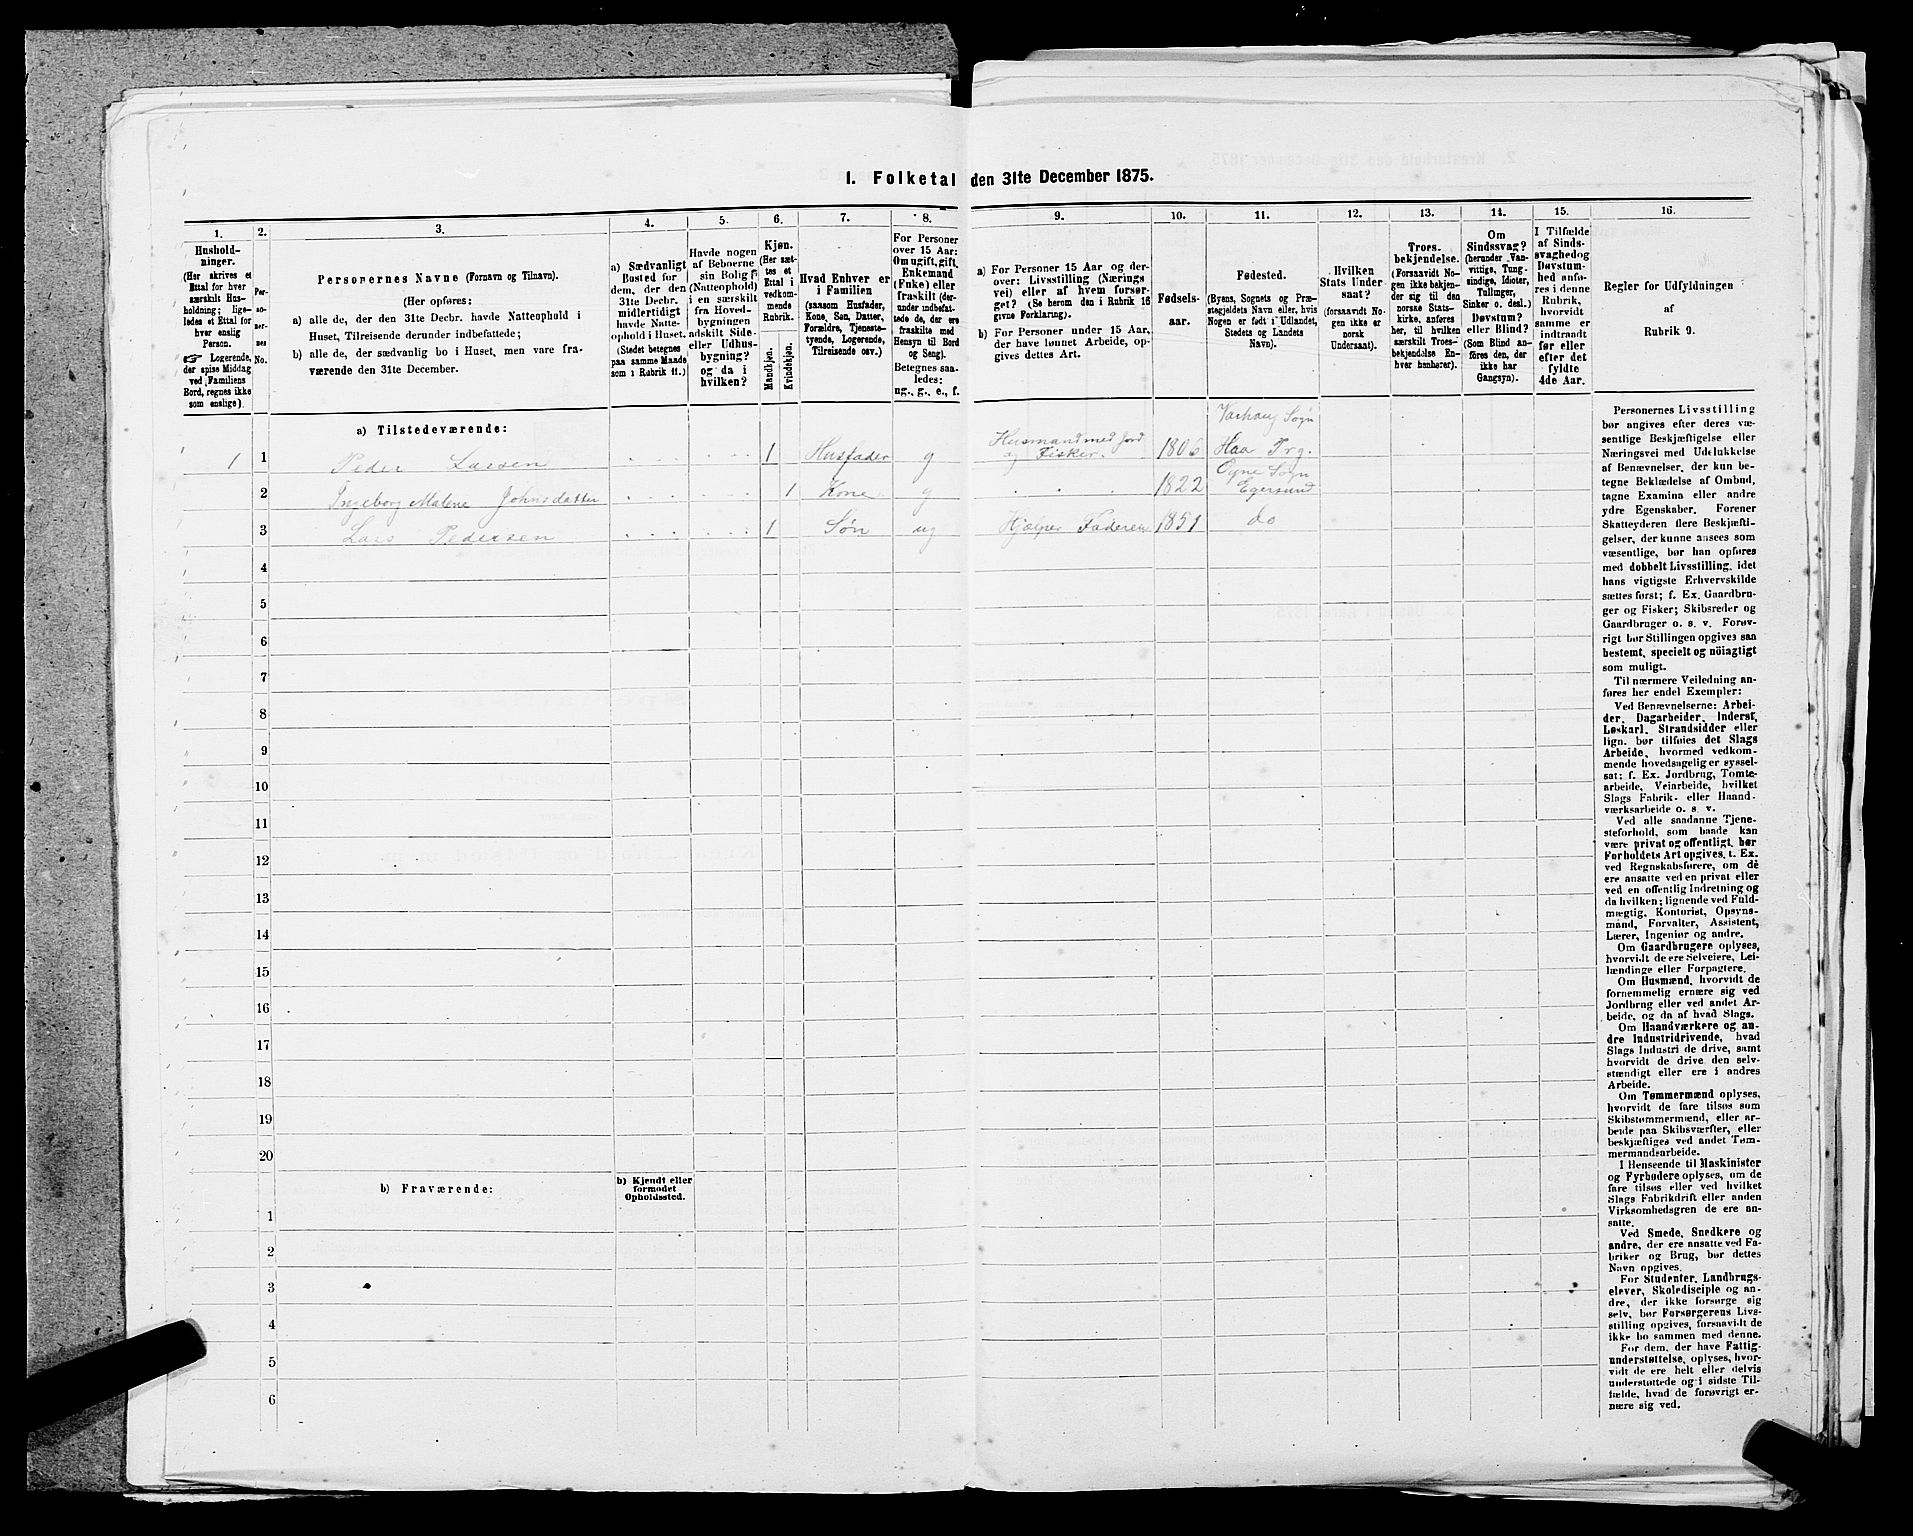 I. Folketal den 31te December 1875.
1.
2.
3.
4.
5.
6.
7.
8.
9.
10.
11.
12.
13.
14.
15.
16.
Hushold-
ninger.
(Her skrives et
Ettal for hver
særskilt Hus-
holdning; lige-
ledes et Ettal for
hver enslig
Person.
☞ Logerende,
der spise Middag
ved Familiens
Bord, regnes ikke
som enslige).
Per-
so-
ner-
nes
No.
Personernes Navne (Fornavn og Tilnavn).
(Her opføres:
a) alle de, der den 31te Decbr. havde Natteophold i
Huset, Tilreisende derunder indbefattede;
b) alle de, der sædvanlig bo i Huset, men vare fra-
værende den 31te December.
a) Sædvanligt
Bosted for
dem, der den
31te Decbr.
midlertidigt
havde Natte-
ophold i Huset.
(Stedet betegnes
paa samme Maade
som i Rubrik 11.)
Havde nogen
af Beboerne
sin Bolig
(Natteophold)
i en særskilt
fra Hoved-
bygningen
adskilt Side-
eller Udhus-
bygning?
og da i
hvilken?
Kjøn.
(Her sæt-
tes et
Ettal i
vedkom-
mende
Rubrik.
Mandkjøn.
Kvindekjøn.
Hvad Enhver er
i Familien
(saasom Husfader,
Kone, Søn, Datter,
Forældre, Tjeneste-
tyende, Logerende,
Tilreisende osv.)
For Personer
over 15 Aar:
Om ugift, gift,
Enkemand
(Enke) eller
fraskilt (der-
under indbefat-
tede de, der ere
fraskilte med
Hensyn til Bord
og Seng).
Betegnes saa-
ledes:
ug., g., e., f.
a) For Personer 15 Aar og der-
over: Livsstilling (Nærings
vei) eller af hvem forsør-
get? (Se herom den i Rubrik 16
givne Forklaring).
b) For Personer under 15 Aar,
der have lønnet Arbeide, op-
gives dettes Art.
Fødsels-
aar.
Fødested.
(Byens, Sognets og Præ-
stegjeldets Navn eller, hvis
Nogen er født i Udlandet,
Stedets og Landets
Navn).
Hvilken
Stats Under
saat?
(forsaavidt No-
gen ikke er
norsk
Undersaat).
Troes-
bekjendelse.
(Forsaavidt No-
gen ikke bekjen-
der sig til den
norske Stats-
kirke, anføres
her, til hvilken
særskilt Troes-
bekjendelse En-
hver henhører).
Om
Sindssvag?
(herunder Van-
vittige, Tung-
sindige, Idioter,
Tullinger,
Sinker o. desl.)
Døvstum?
eller Blind?
(Som Blind an-
føres den, der
ikke har
Gangsyn).
I Tilfælde
af Sinds-
svaghed og
Døvstum-
hed anfø-
res i denne
Rubrik,
hvorvidt
samme er
indtraadt
før eller
efter det
fyldte
4de Aar.
Regler for Udfyldningen
af
Rubrik 9.
a) Tilstedeværende:
1 1 Peder Larsen 1 Husfader g Husmand med Jord og Fisker. 1806 Varhaug Sogn Haa Prg.
2 Ingeborg Malene Johnsdatter 1 Kone g 1822 Ogne Sogn Egersund
3 Lars Pedersen 1 Søn ug Hjælper Faderen 1851 do
4
5
6
7
8
9
10
11
12
13
14
15
16
17
18
19
20
b) Fraværende:
b) Kjendt eller
formodet
Opholdssted.
1
2
3
4
5
6
Personernes Livsstilling
bør angives efter deres væ-
sentlige Beskjæftigelse eller
Næringsvei med Udelukkelse
af Benævnelser, der kun be-
tegne Beklædelse af Ombud,
tagne Examina eller andre
ydre Egenskaber. Forener
Skatteyderen flere Beskjæfti-
gelser, der kunne ansees som
væsentlige, bør han opføres
med dobbelt Livsstilling, idet
hans vigtigste Erhvervskilde
sættes først; f. Ex. Gaardbru-
ger og Fisker; Skibsreder og
Gaardbruger o. s. v. Forøv-
rigt bør Stillingen opgives saa
bestemt, specielt og nöiagtigt
som muligt.
Til nærmere Veiledning an-
føres her endel Exempler:
Ved Benævnelserne: Arbei-
der, Dagarbeider, Inderst,
Løskarl, Strandsidder eller
lign. bør tilføies det Slags
Arbeide, hvormed vedkom-
mende hovedsagelig er syssel-
sat; f. Ex. Jordbrug, Tomte-
arbeide, Veiarbeide, hvilket
Slags Fabrik- eller Haand-
værksarbeide o. s. v.
Ved alle saadanne Tjene-
steforhold, som baade kan
være privat og offentligt, bør
Forholdets Art opgives, f. Ex.
ved Regnskabsførere, om de
ere ansatte ved en privat eller
ved en offentlig Indretning og
da hvilken; lignende ved Fuld-
mægtig, Kontorist, Opsyns-
mand, Forvalter, Assistent,
Lærer, Ingeniør og andre.
Om Gaardbrugere oplyses,
hvorvidt de ere Selveiere, Lei-
lændinge eller Forpagtere.
Om Husmænd, hvorvidt de
fornemmelig ernære sig ved
Jordbrug eller ved andet Ar-
beide, og da af hvad Slags.
Om Haandværkere og an-
dre Industridrivende, hvad
Slags Industri de drive, samt
hvorvidt de drive den selv-
stændigt eller ere i andres
Arbeide.
Om Tømmermænd oplyses,
hvorvidt de fare tilsøs som
Skibstømmermænd, eller ar-
beide paa Skibsværfter, eller
beskjæftiges ved andet Tøm-
mermandsarbeide.
I Henseende til Maskinister
og Fyrbødere oplyses, om de
fare tilsøs eller ved hvilket
Slags Fabrikdrift eller anden
Virksomhedsgren de ere an-
satte.
Ved Smede, Snedkere og
andre, der ere ansatte ved Fa-
briker og Brug, bør dettes
Navn opgives.
For Studenter, Landbrugs-
elever, Skoledisciple og an-
dre, der ikke forsørge sig
selv, bør Forsørgerens Livs-
stilling opgives, forsaavidt de
ikke bo sammen med denne.
For dem, der have Fattig-
understøttelse, oplyses, hvor-
vidt de ere helt eller delvis
understøttede og i sidste Til-
fælde, hvad de forøvrigt er-
nære sig ved.